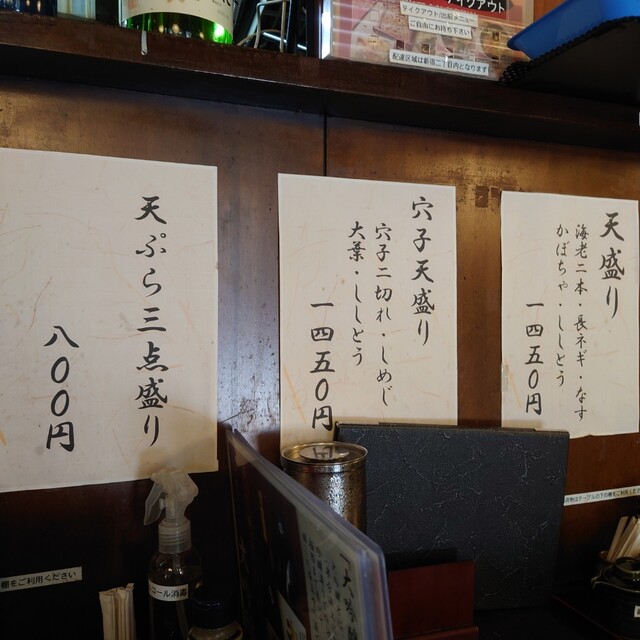 テイクアウト
テイクアウト/出前メニュー
ご自由にお持ち下さい
配達区域は新宿二丁目内となります
天盛り
海老二本・長ネギ・なす
かぼちゃ・ししとう
一四五〇円
穴子天盛り
穴子二切れ・しめじ
大葉・ししとう
一四五〇円
天ぷら三点盛り
八〇〇円
棚をご利用ください
コール消毒